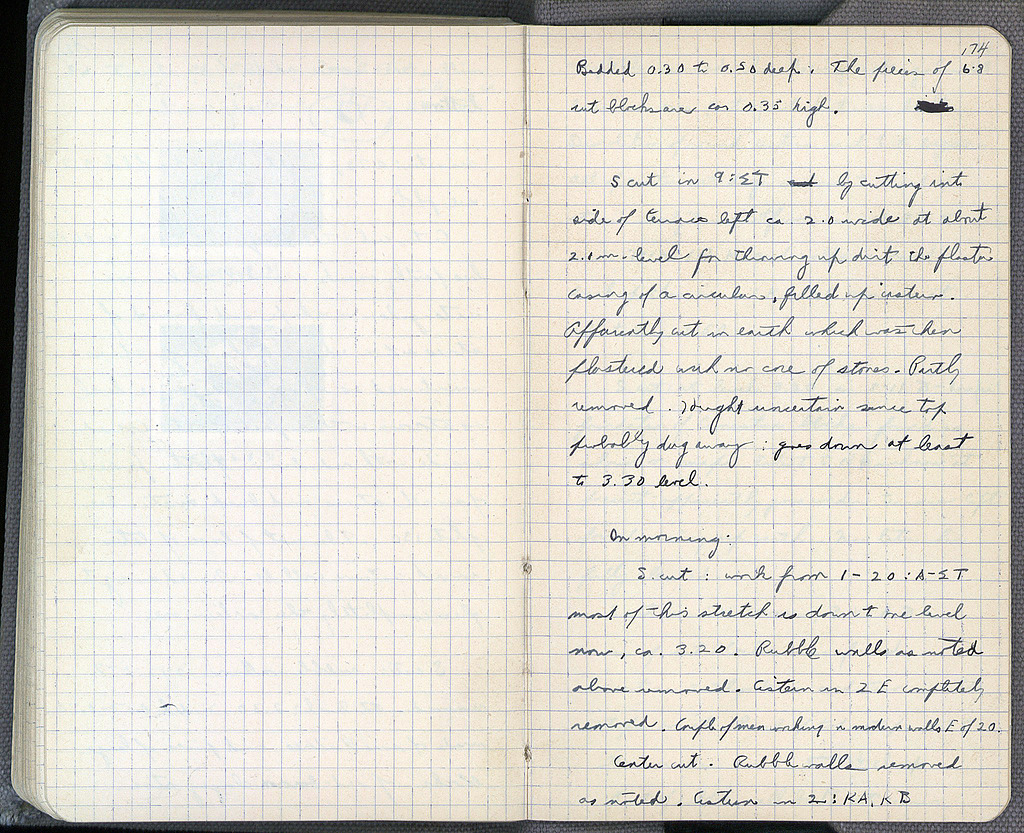 174
Bedded 0.30 to 0.50 deep. The pieces of 6-8
cut blocks are ca 0.35 high.
S cut in 9:ΣT by cutting into
side of terrace left ca. 2.0 wide at about
2.1 m. level for throwing up dirt the plaster
casing of a circular, filled up cistern.
Apparently cut in earth which was then
plastered with no core of stones. Partly
removed. Height uncertain since top
probably dug away : goes down at least
to 3.30 level.
In morning:
S. cut : work from 1-20 : A-ΣT
most of this stretch is down to one level
now, ca. 3.20. Rubble walls as noted
above removed. Cistern in 2 E completely
removed. Couple of men working in modern walls E of 20.
Center cut. Rubble walls removed
as noted. Cistern in 2: KA, KB